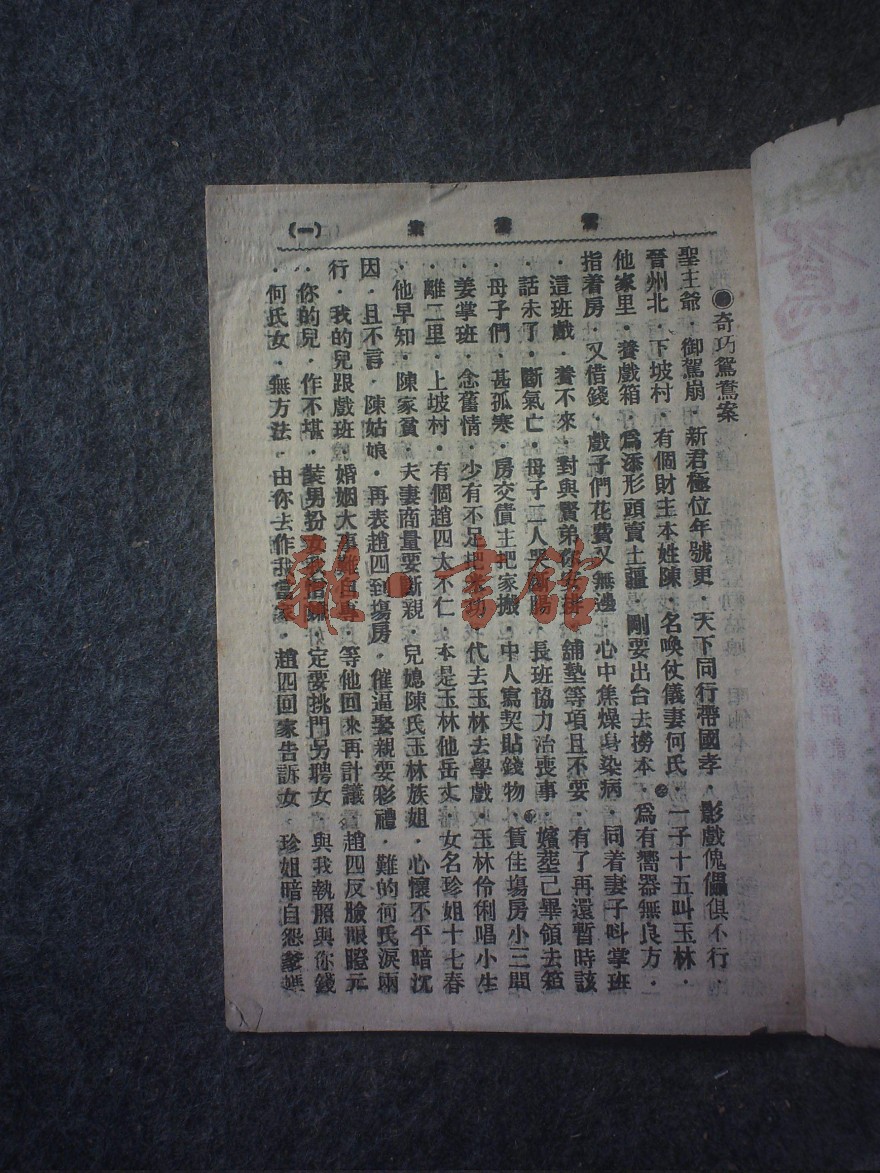 鴛鴦案
(一)
●奇巧鴛鴦案
聖主爺·御駕崩·新君極位年號更·天下同行帶國孝·影戲傀儡俱不行·
晉州北·下坡村·有個財主本姓陳·名喚仗儀妻何氏·一子十五叫玉林·
他家里·養戲箱·爲添形頭賣土疆·剛要出台去撈本·爲有嚮器無良方·
指着房·又借錢·戲子們花費又無邊·心中焦燥身染病·同着妻子呌掌班
·這班戲·養不來·對與賢弟你安排·舖墊等項且不要·有了再還暫時該
·話未了·斷氣亡·母子二人哭斷腸·長班協力治喪事·嬪葬己畢領去箱
·母子們·甚孤寒·房交債主把家搬·中人寫契貼錢物·賃住塲房小三間
·姜掌班·念舊情·少有不足把·代去玉林去學戲·玉林伶俐唱小生
·離二里·上坡村·有個趙四太不仁·本是玉林他岳丈·女名珍姐十七春
·他早知·陳家貧·夫妻商量要斷親·兒媳陳氏玉林族姐·心懷不平暗沈
因·且不言·陳姑娘·再表趙四到塲房·催逼娶親要彩禮·難的何氏淚兩
行·我的兒跟戲班·婚姻大事難自專·等他回來再計議·趙四反臉眼瞪元
·你的兒·作不堪·裝男扮女我·定要挑門另聘女·與我執照與你錢
·何氏女·無方法·由你去作我當家·趙四回家告訴女·珍姐暗自怨爹媽
雜·書館
鴛